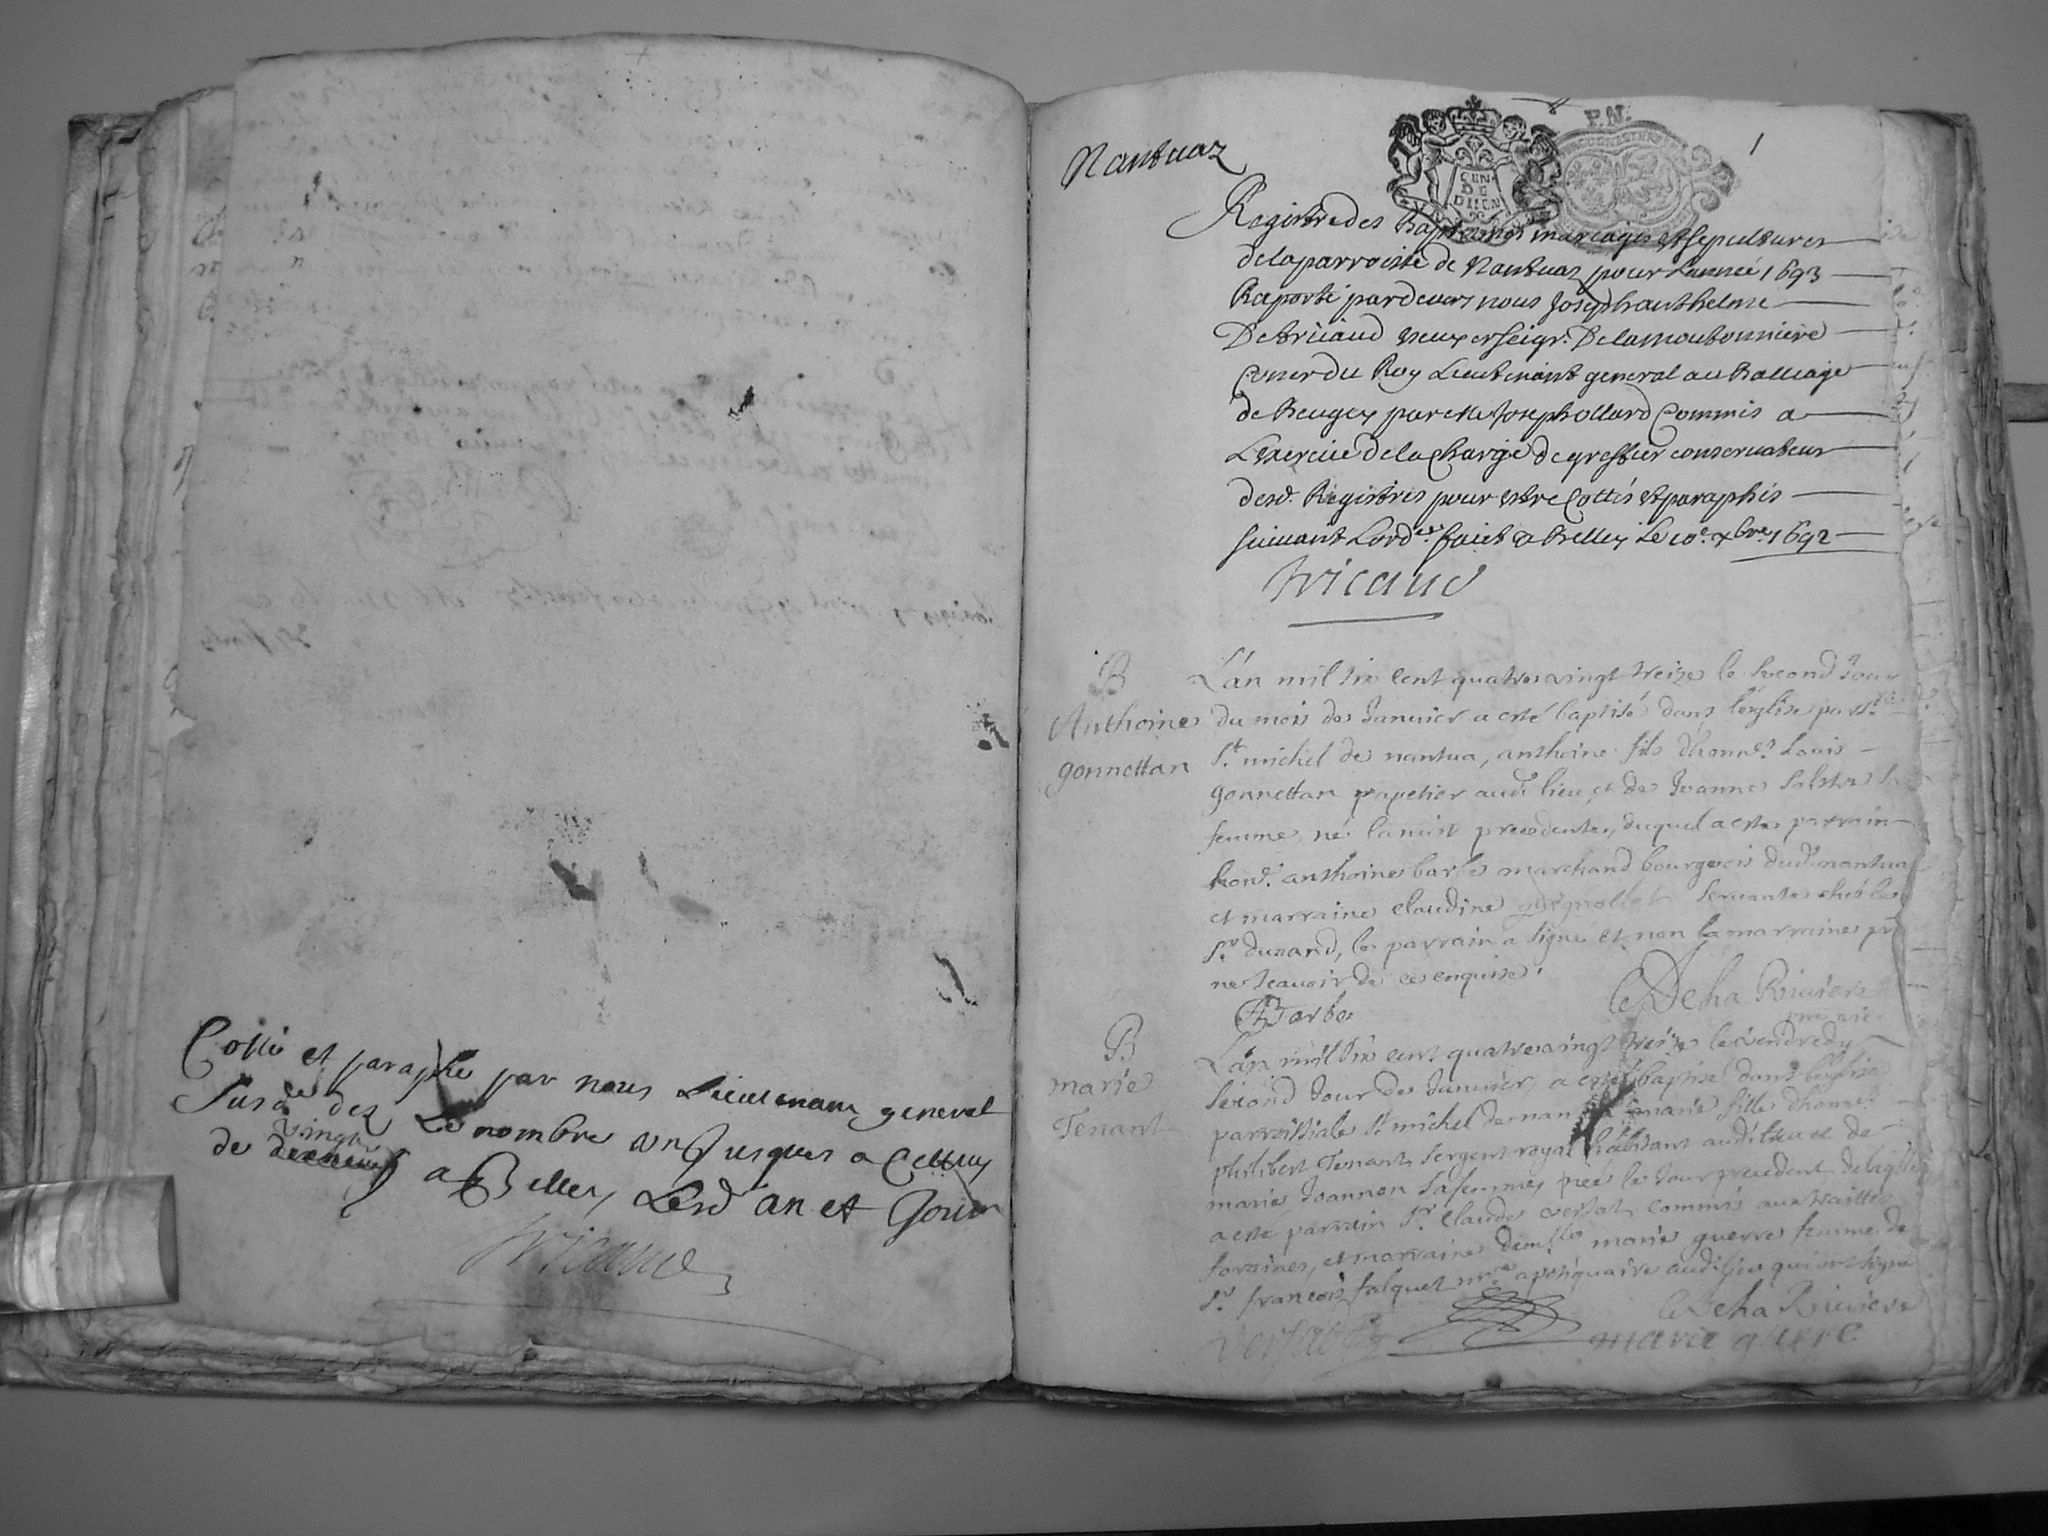 Cotté et paraphé par nous Lieutenant general
Susd. dez Le nombre un Jusques a Celluy
vingt
de a Belley Lesd an et Jour
Tricaud
Nantuaz
P.N.
1
GEN
DE
DIION
Registre des Baptesmes mariages et sepultures
de la parroisse de Nantuaz pour Lannée 1693
Raporté pardevers nous Joseph anthelme
De tricaud seigr. De lamoutonniere
Coner du Roy Lieutenant general au Balliage
de Beugey par Me Joseph ollard Commis a
Lexercice de la Charge de greffier conservateur
desd. Registres pour estre Cottés et paraphés
suivant Lordce. faict a Belley Le 10e. xbre. 1692
Tricaud
B
Anthoine
gonnettan
L'an mil six cent quatre vingt treize le second Jour
du mois de Janvier a esté baptisé dans l'eglise
St. michel de nantua, anthoine fils d'honnes. Louis
gonnettan papetier aud. lieu, et de Jeanne
femme, né la nuit precedente, duquel a esté parrain
hon. anthoine barbe marchand bourgeois dud. nantua
et marraine claudine servante chés le
Sr. durand, le parrain a signé et non la marraine pr
ne scavoir de ce enquise.
A Barbe
Deha Riviere
B
marie
Tenant
L'an mil six cent quatre vingt treize le vendredy
second Jour de Janvier, a esté baptisé dans l'eglise
parroissiale St michel de nantua marie fille d'honnes.
philibert Tenant sergent royal habitant aud. lieu et de
marie Joannon sa femme, née le Jour precedent, de laquelle
a esté parrain Sr. claude versat commis aux traittes
foraines, et marraine demlle marie guerre femme de
Sr. francois falquet me. apotiquaire aud. lieu qui ont signé
Deha Riviere
marie guere